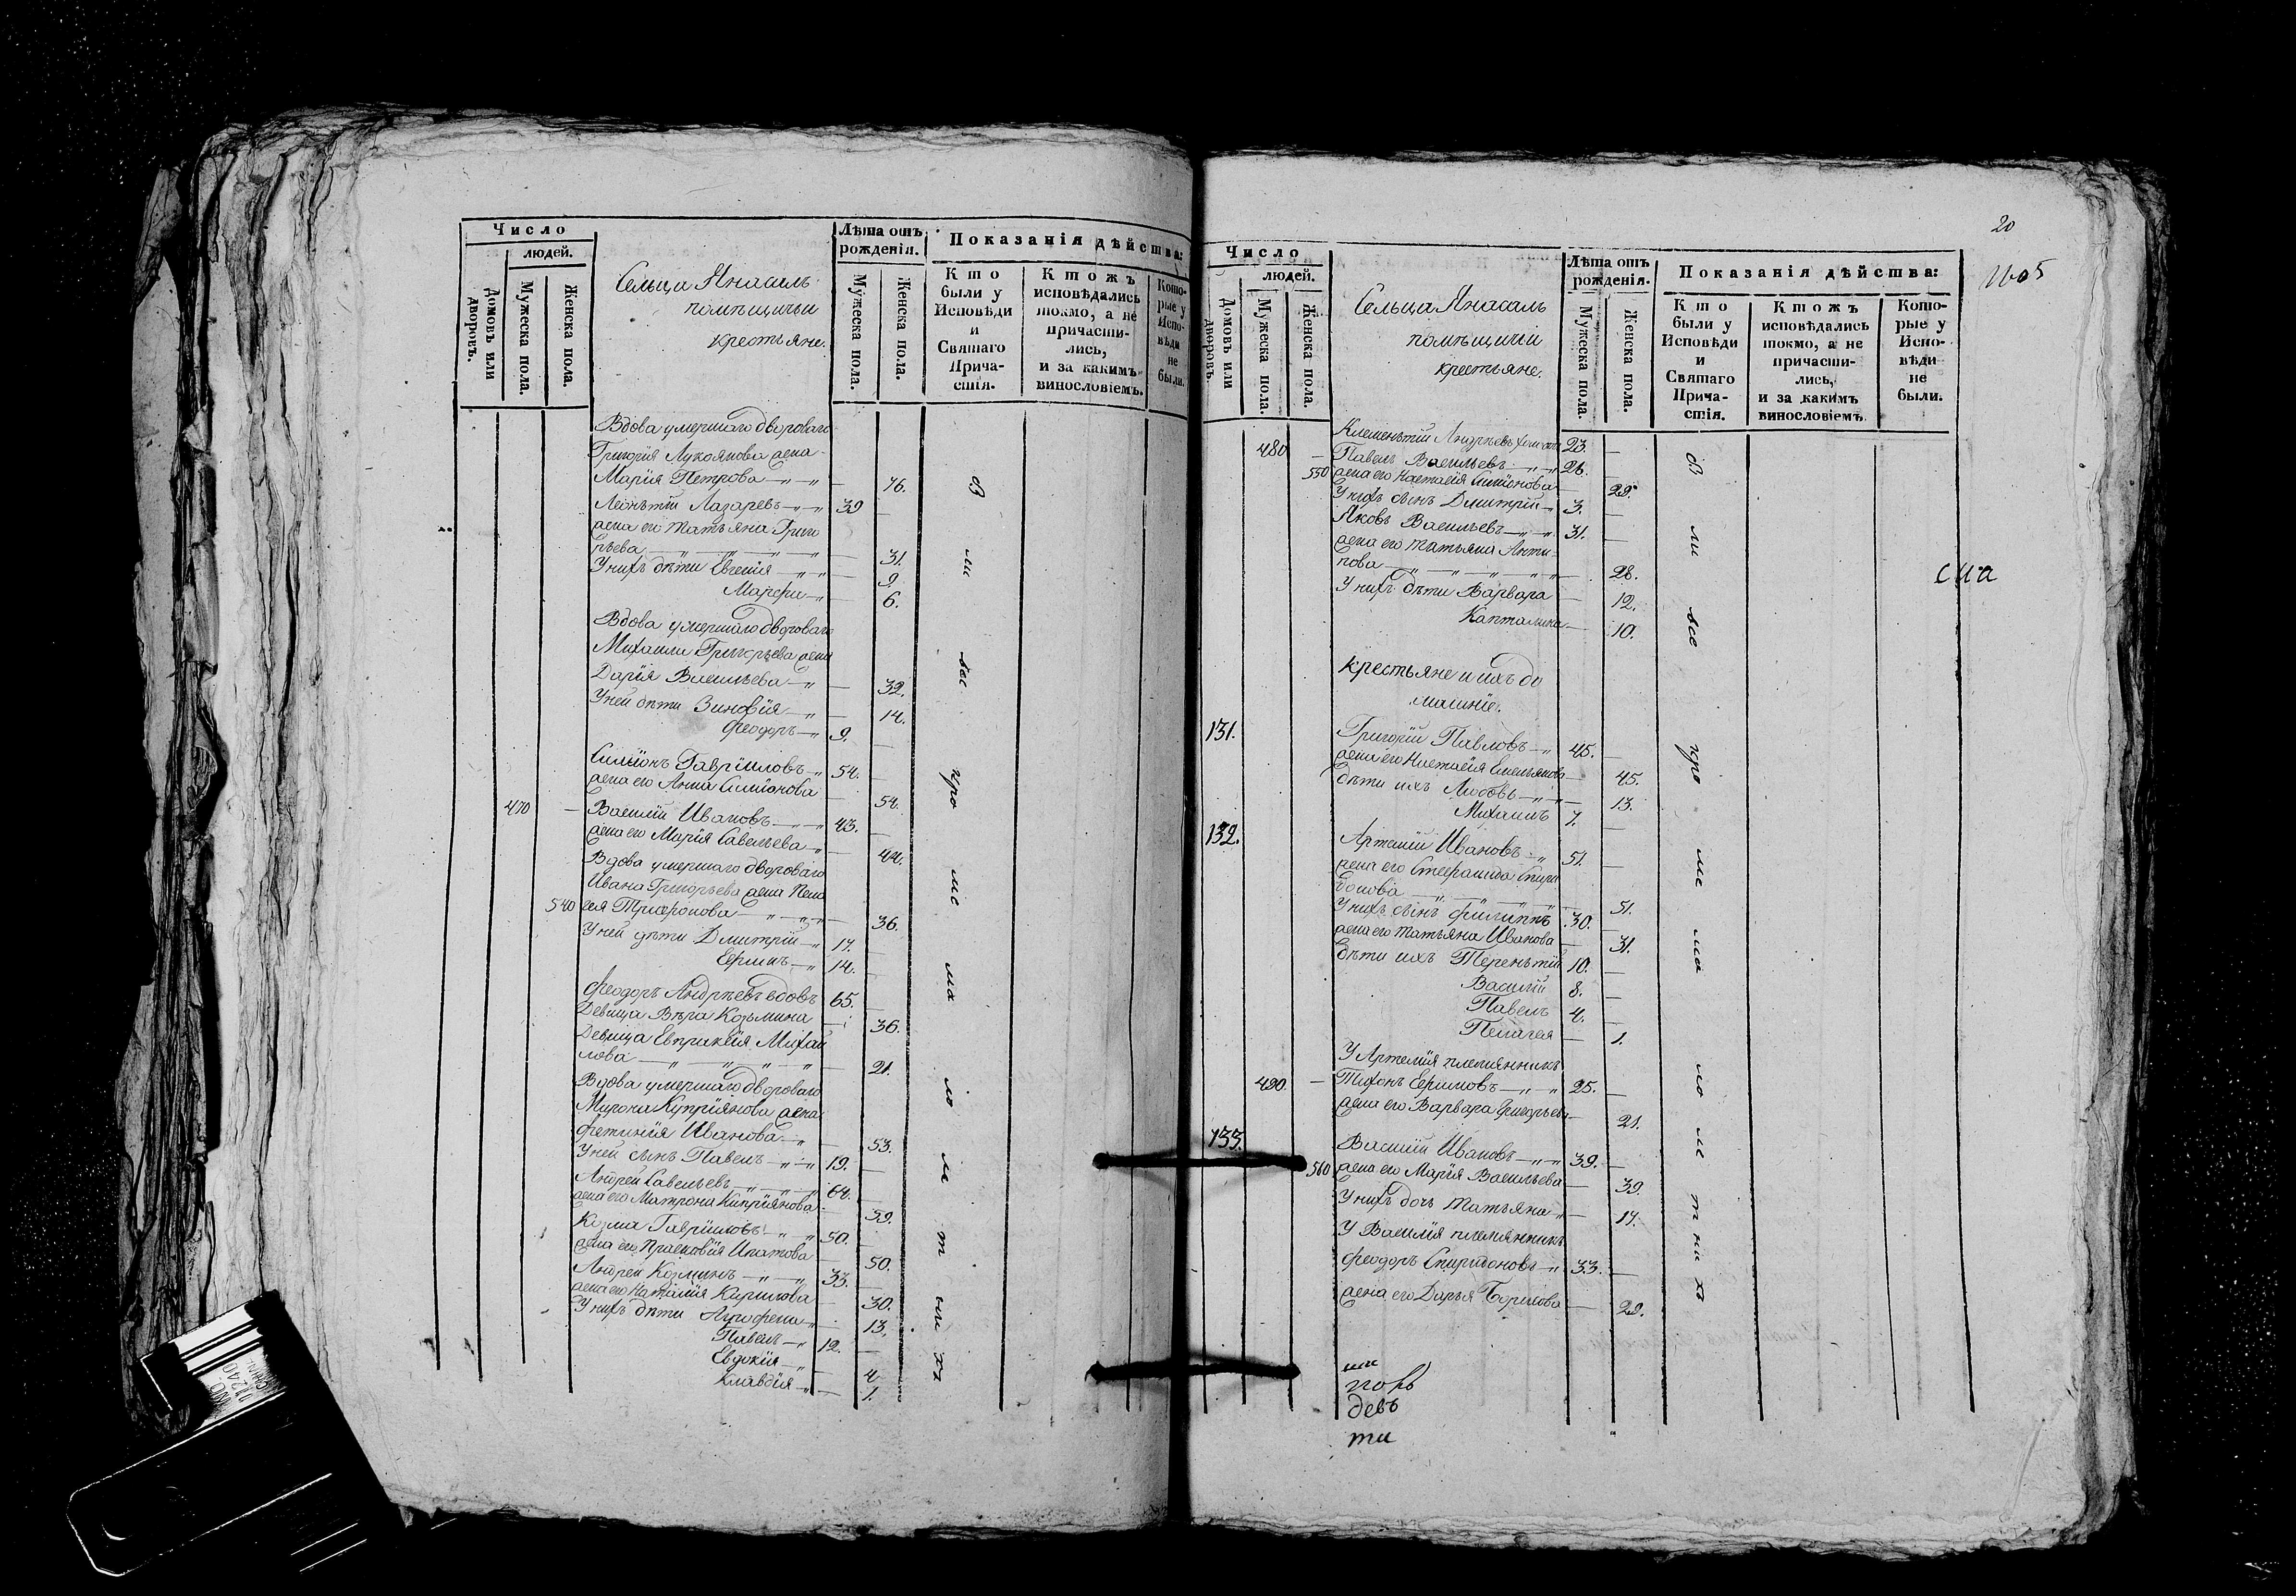 Число
людей.
Домовъ или дворовъ.
Мужеска пола.
Женска пола.
Сельца Янасаль
помѣщичьи
крестьяне.
Лѣта отъ
рожденія.
Мужеска пола.
Женска пола.
Показанія дѣйства:
Кто были у Исповѣди и Святаго Прича- стія.
Ктожъ исповѣдались токмо, а не причасти- лись, и за какимъ винословіемъ.
Кото- рые у Испо- вѣди не были.
Вдова умершаго двороваго
Григорія Лукоянова жена
Марія Петрова — 76.
Леонътій Лазаревъ 39 —
жена его Татьяна Григо
рьева — 31.
У нихъ дѣти Евгенія — 9.
Марфа — 6.
Вдова умершаго двороваго
Михаила Григорьева жена
Дарія Васильева — 32.
У ней дѣти Зиновія — 14.
Феодоръ 9. —
Симіонъ Гавріиловъ 54. —
жена его Анна Симіонова — 54.
470 — Василій Ивановъ 43. —
жена его Марія Савельева — 44.
Вдова умершаго двороваго
Ивана Григорьева жена Пела
540 гея Трифонова — 36.
У ней дѣти Дмитрій 17. —
Ефимъ 14. —
Феодоръ Андреевъ вдовъ 65. —
Девица Вѣра Козьмина — 36.
Девица Евпраксія Михаи
лова — 21.
Вдова умершаго двороваго
Мирона Купріянова жена
Фетинія Иванова — 53.
У ней сынъ Павелъ 19. —
Андрей Савельевъ 64. —
жена его Матрона Кипріянова — 59.
Козма Гавріиловъ 50. —
жена его Прасковія Ипатова — 50.
Андрей Козминъ 33. —
жена его Наталія Кирилова — 30.
У нихъ дѣти Агрофена — 13.
Павелъ 12. —
Евдокія — 4.
Клавдія — 1.
20
1605
Число
людей.
Домовъ или дворовъ.
Мужеска пола.
Женска пола.
Сельца Янасаль
помѣщичіи
крестьяне.
Лѣта отъ
рожденія.
Мужеска пола.
Женска пола.
Показанія дѣйства:
Кто были у Исповѣди и Святаго Прича- стія.
Ктожъ исповѣдались токмо, а не причасти- лись, и за какимъ винословіемъ.
Кото- рые у Испо- вѣди не были.
Клеменътій Андреевъ холостъ 23. —
480 — Павелъ Васильевъ 28. —
550 жена его Настасія Симіонова 29.
У нихъ сынъ Дмитрій 3. —
Яковъ Васильевъ 31. —
жена его Татьяна Анти
пова — 28.
У нихъ дѣти Варвара — 12.
Капталина — 10.
крестьяне и ихъ до
машніе.
131. Григорій Павловъ 45. —
жена его Настасія Емельянова — 45.
дѣти ихъ Любовь — 13.
Михаилъ 7. —
132. Артемій Ивановъ 51. —
жена его Стефанида Спири
донова — 51.
У нихъ сынъ Филиппъ 30. —
жена его Татьяна Иванова — 31.
дѣти ихъ Теренътій 10. —
Василій 8. —
Павелъ 4. —
Пелагея — 1.
У Артемія племянникъ
490. — Тихонъ Ефимовъ 25. —
жена его Варвара Григорьева — 21.
133. Василій Ивановъ 39. —
560 жена его Марія Васильева — 39.
У нихъ дочь Татьяна — 17.
У Василія племянникъ
Феодоръ Спиридоновъ 33. —
жена его Дарья Борисова — 29.